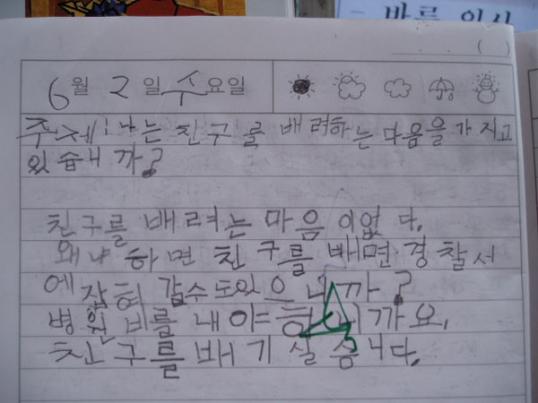 바를 인사
( )
6월 2일 수요일
주제: 나는 친구를 배려하는 마음을 가지고
있습니까?
친구를 배려는 마음이없다.
왜냐하면 친구를 배면 경찰서
에 잡혀 갈수도있으니까?
병원비를 내야 하니까요.
친구를 배기 실습니다.